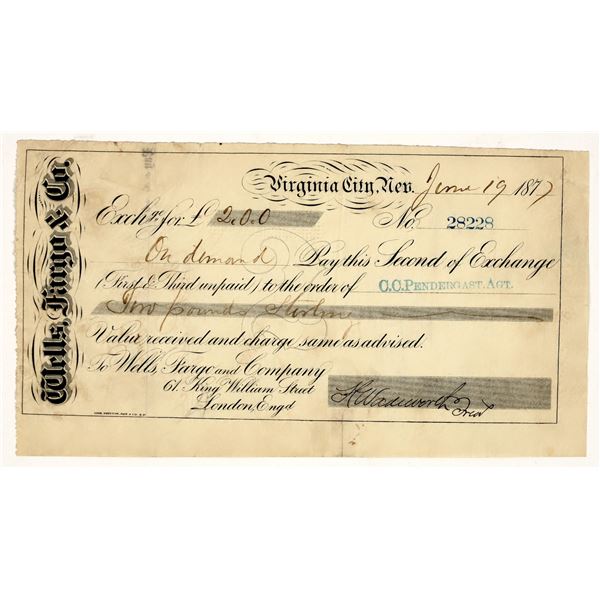 Wells, Fargo & Co.
Virginia City, Nev. June 19 1877
Exchge for £ 2.0.0 No. 28228
On demand Pay this Second of Exchange
(First & Third unpaid) to the order of C.C. PENDERGAST. AGT.
Two pounds Sterlin
Value received and charge same as advised.
To Wells, Fargo and Company
61. King William Street
London, Engd
H Wadsworth